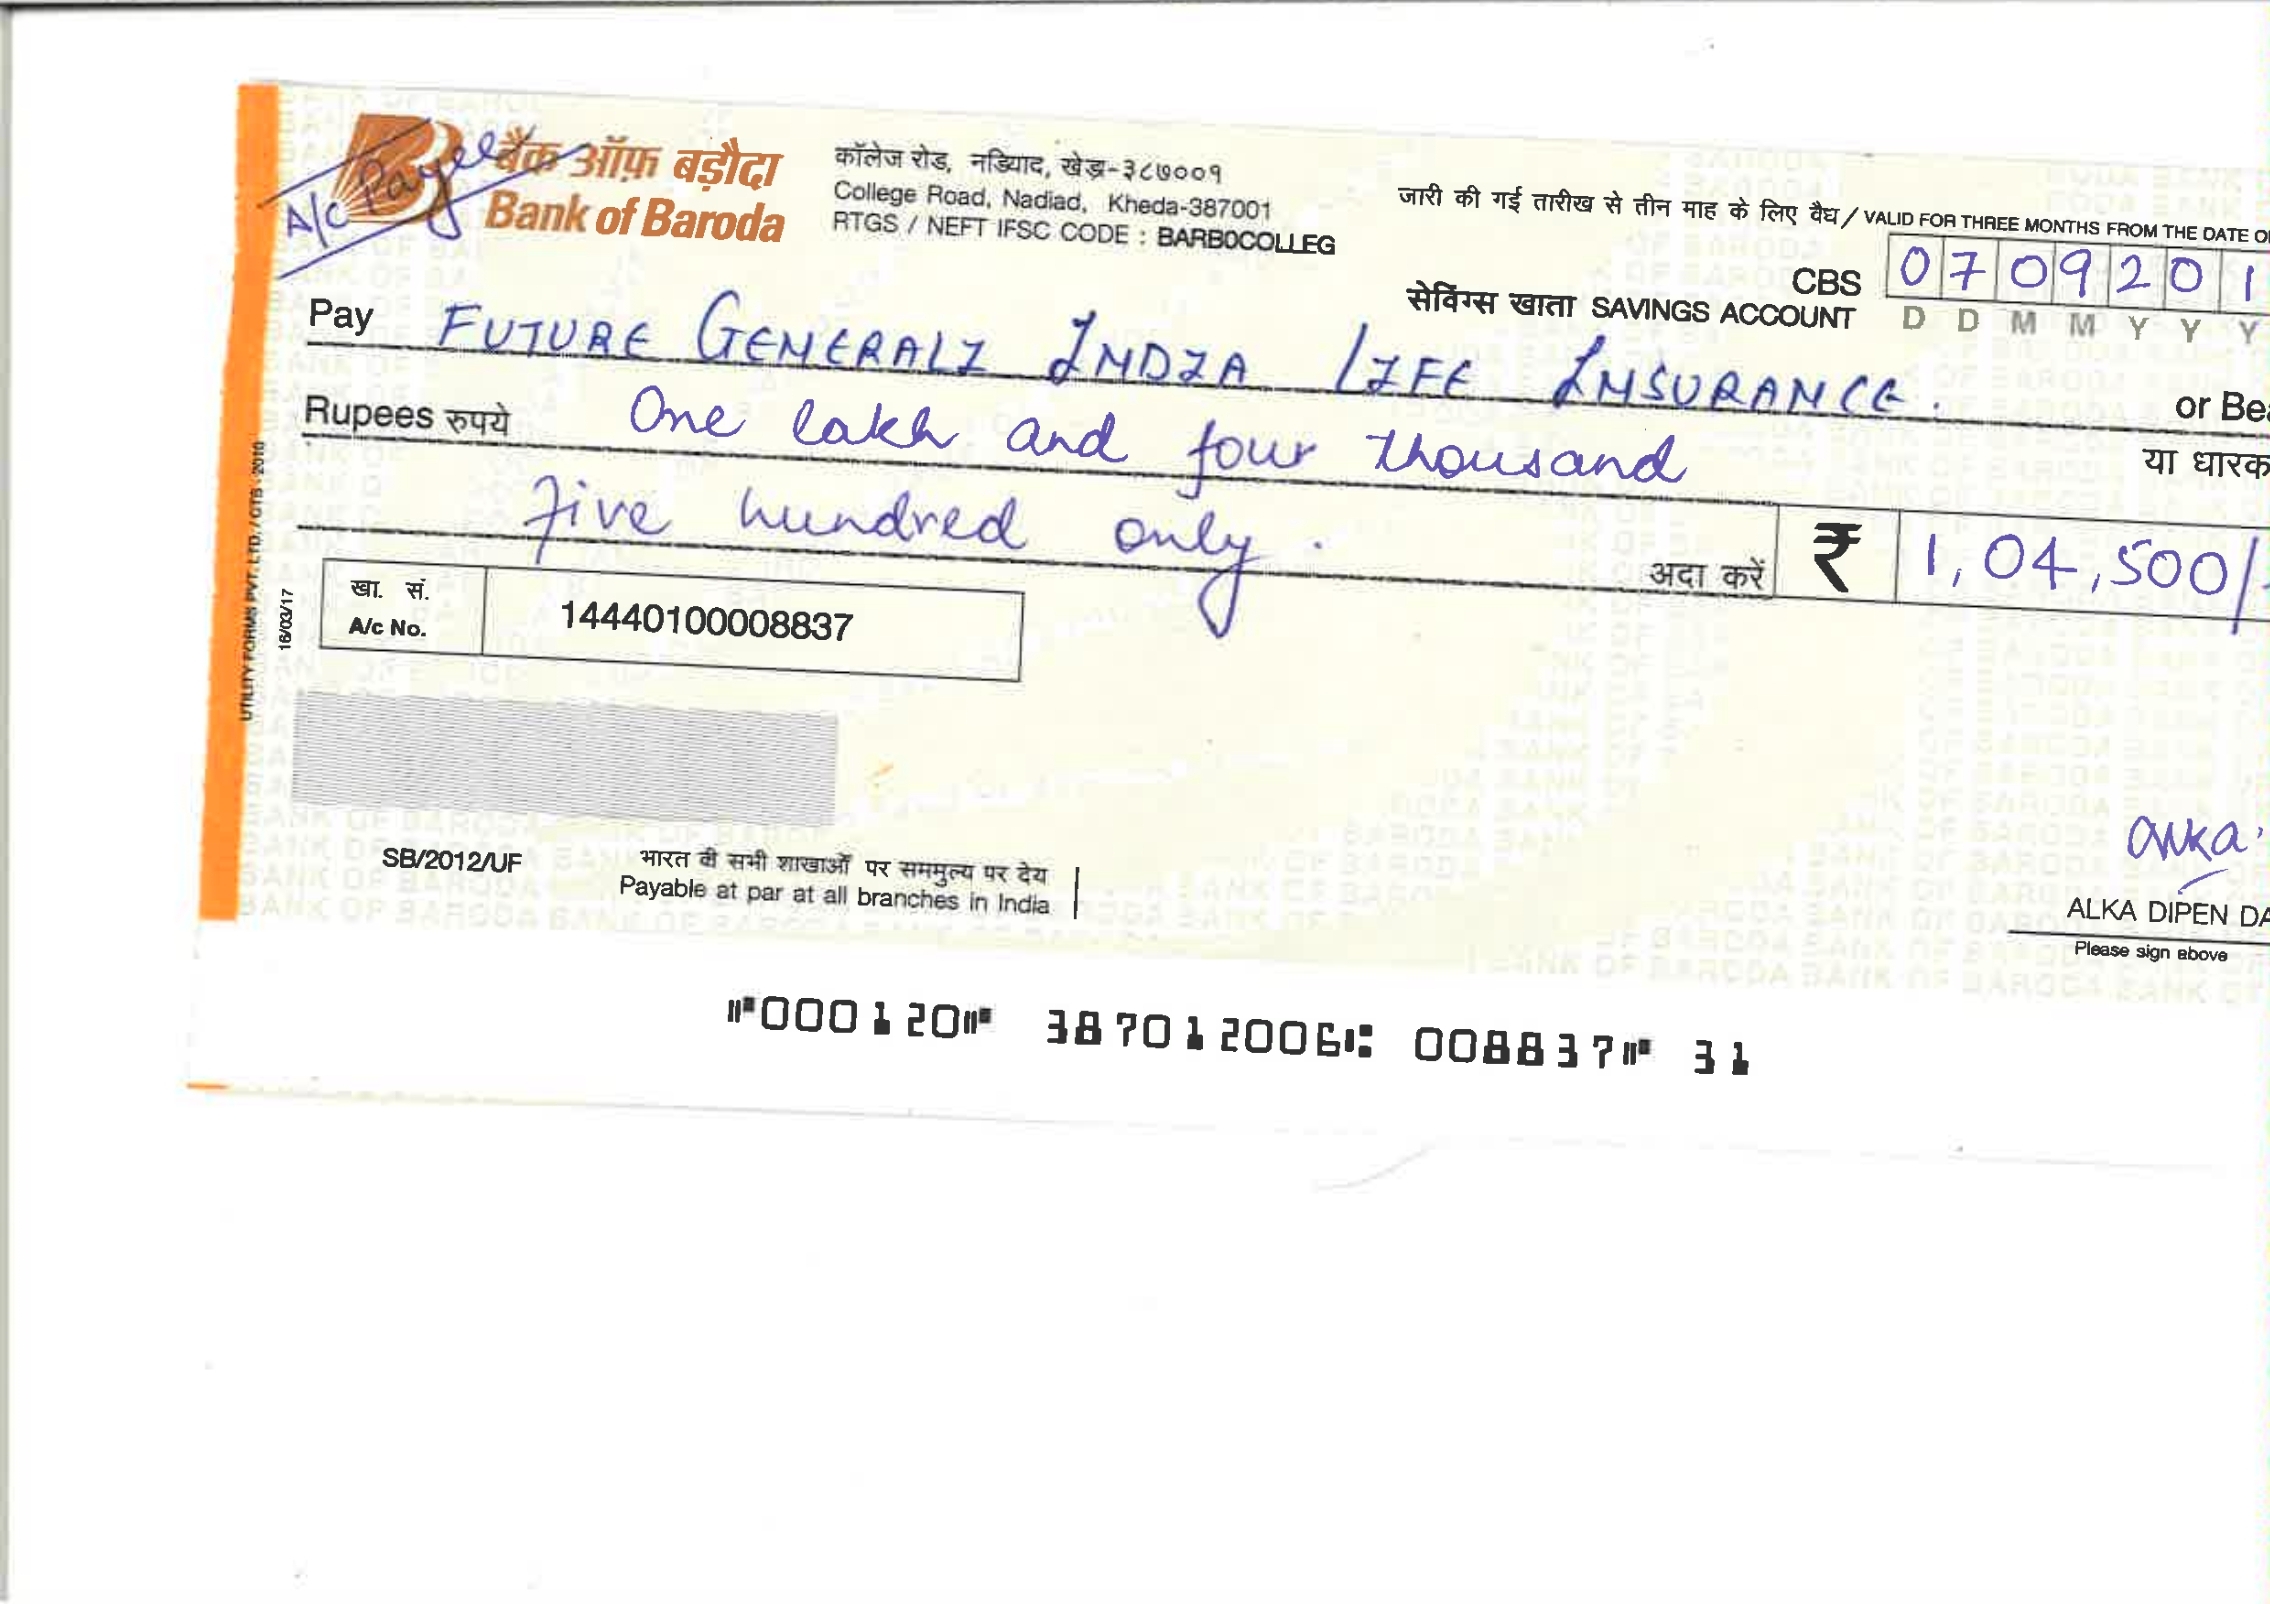 A/c Payee
बैंक ऑफ़ बड़ौदा
Bank of Baroda
कॉलेज रोड, नडियाद, खेड़ा-३८७००१
College Road, Nadiad, Kheda-387001
RTGS / NEFT IFSC CODE : BARB0COLLEG
जारी की गई तारीख से तीन माह के लिए वैध / VALID FOR THREE MONTHS FROM THE DATE O
CBS
0 7 0 9 2 0 1
सेविंग्स खाता SAVINGS ACCOUNT
D D M M Y Y Y
Pay FUTURE GENERALI INDIA LIFE INSURANCE.
or Bea
Rupees रुपये One lakh and four thousand
या धारक
five hundred only.
अदा करें ₹ 1,04,500/-
खा. सं.
A/c No.
14440100008837
UTILITY FORMS PVT. LTD. / CTS - 2010
16/03/17
SB/2012/UF
भारत की सभी शाखाओं पर सममुल्य पर देय
Payable at par at all branches in India
Alka.
ALKA DIPEN DA
Please sign above
⑈000120⑈ 387012006⑆ 008837⑈ 31